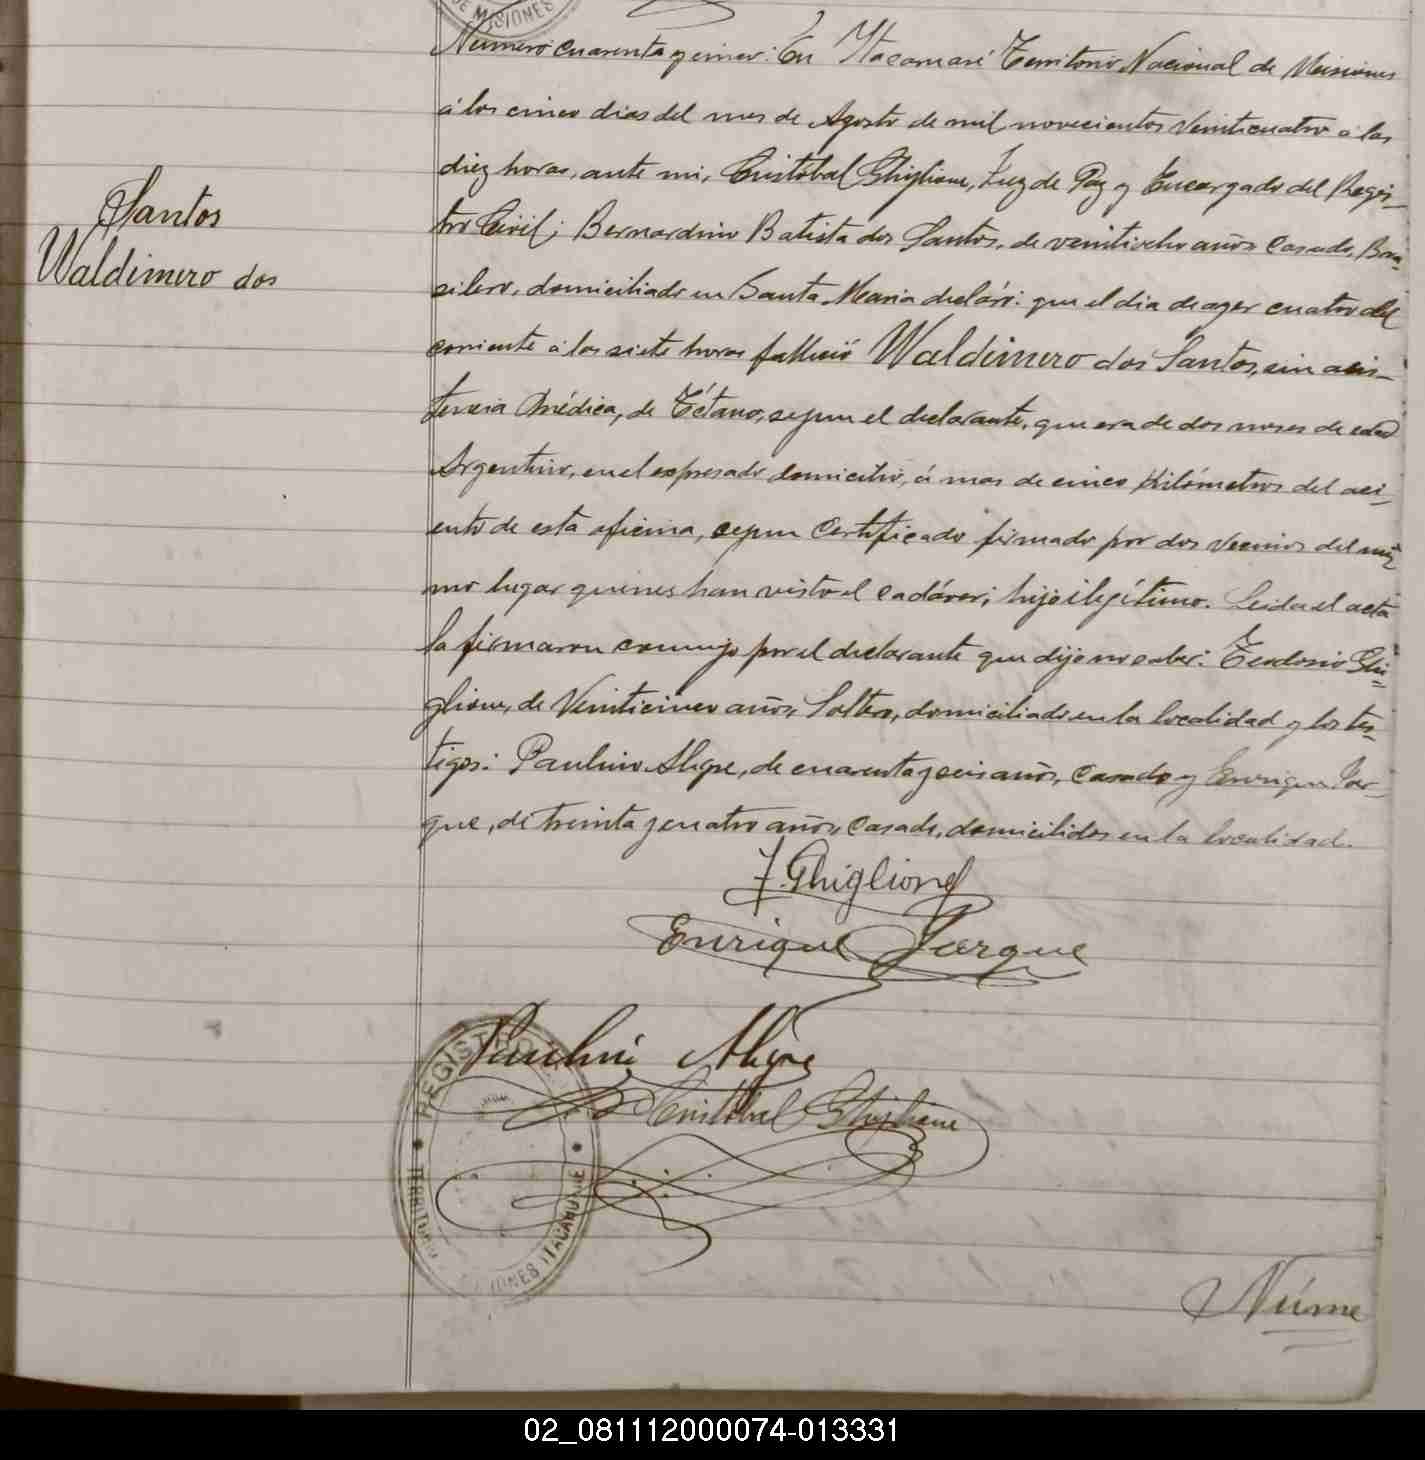 DE MISIONES
Número cuarenta y cinco: En Itacaruaré Territorio Nacional de Misiones
á los cinco dias del mes de Agosto de mil novecientos veinticuatro á las
diez horas, ante mi, Cristóbal Ghiglione, Juez de Paz y Encargado del Regis-
Santos
tro Civil; Bernardino Batista dos Santos, de veintiocho años Casado, Bra-
Waldimero dos
silero, domiciliado en Santa Maria declaró: que el dia de ayer cuatro del
corriente á las siete horas falleció Waldimero dos Santos, sin asis-
tencia Médica, de Tétano, segun el declarante, que era de dos meses de edad
Argentino, en el expresado domicilio, á mas de cinco Kilómetros del asi-
ento de esta oficina, segun Certificado firmado por dos vecinos del mis-
mo lugar quienes han visto el cadáver; hijo ilegítimo. Leida el acta
la firmaron conmigo por el declarante que dijo no saber: Teodosio Ghi-
glione, de Veinticinco años, Soltero, domiciliado en la localidad y los tes-
tigos: Paulino Alegre, de cuarenta y seis años, Casado y Enrique Jar-
que, de treinta y cuatro años, casado, domicilidos en la localidad.
T. Ghiglione
Enrique Jarque
Paulino Alegre
Cristóbal Ghiglione
REGISTRO
TERRITORIO
MISIONES ITACARUARE
Núme
02_081112000074-013331